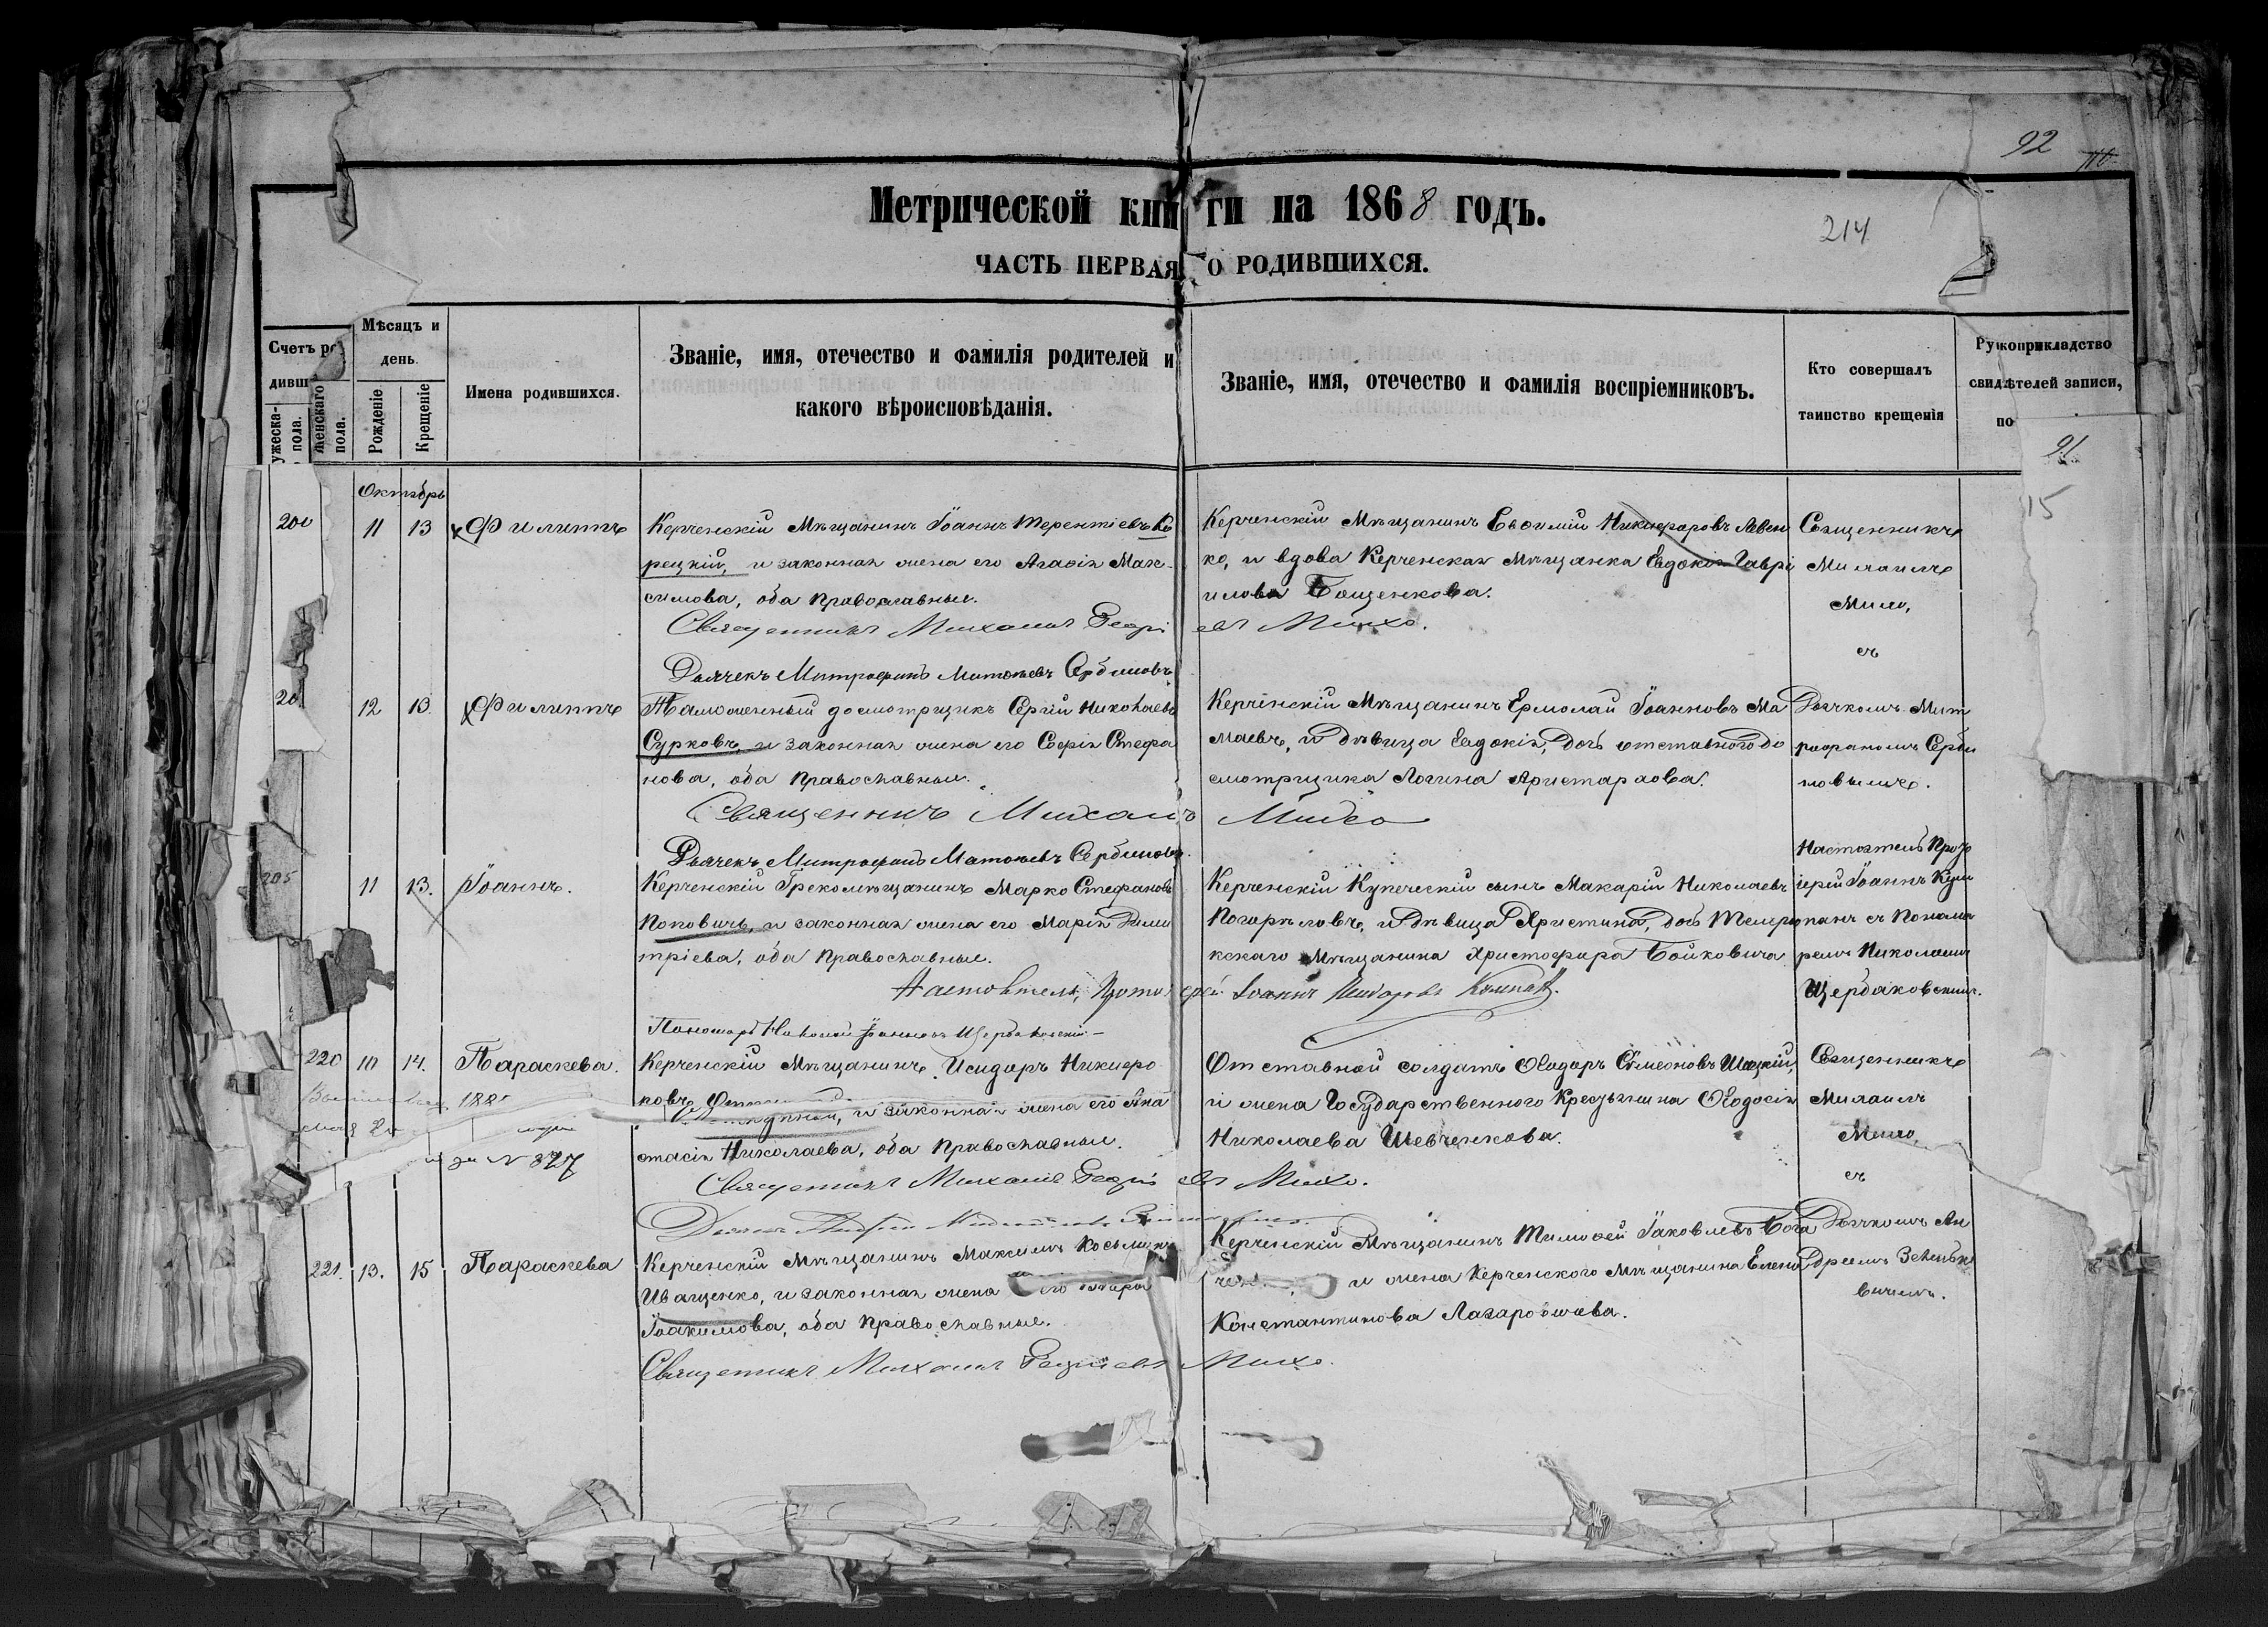 92
Метрической книги на 1868 годъ.
214
ЧАСТЬ ПЕРВАЯ О РОДИВШИХСЯ.
Счетъ ро
дивш
ужеска-
пола.
женскаго
пола.
Мѣсяцъ и
день.
Рожденіе
Крещеніе
Имена родившихся.
Званіе, имя, отечество и фамилія родителей и
какого вѣроисповѣданія.
Званіе, имя, отечество и фамилія воспріемниковъ.
Кто совершалъ
таинство крещенія
Рукоприкладство
свидѣтелей записи,
по
91
15
Октябрь
11 13 Филиппъ
Керченскій Мѣщанинъ Іоаннъ Терентіевъ Ко
рецкій, и законная жена его Агафія Мак-
симова, оба Православные.
Священникъ Михаилъ Георгіевъ Михо.
Дьячекъ Митрофанъ Матвѣевъ Сербиновъ
Керченскій Мѣщанинъ Евфимій Никифоровъ Левен
ко, и вдова Керченская Мѣщанка Евдокія Гаврі
илова Бащенкова.
Священникъ
Михаилъ
Михо,
съ
12 13. Филиппъ
Таможенный досмотрщикъ Сергій Николаевъ
Сурковъ, и законная жена его Софія Стефа
нова, оба Православные.
Священникъ Михаилъ Михо
Дьячекъ Митрофанъ Матвѣевъ Сербиновъ.
Керченскій Мѣщанинъ Ермолай Іоанновъ Ма
маевъ, и дѣвица Евдокія, дочь отставного до
смотрщика Логина Аристархова.
Дьячкомъ Мит
рофаномъ Серби
новымъ.
205 11 13. Іоаннъ.
Керченскій Грекомѣщанинъ Марко Стефановъ
Поповичъ, и законная жена его Марія Дими
тріева, оба Православные.
Настоятель, Протоіерей Іоаннъ
Пономарь Николай Іоанновъ Щербаковскій
Керченскій Купеческій сынъ Макарій Николаевъ
Погорѣловъ, и Дѣвица Христина, дочь Темрю
кскаго Мѣщанина Христофора Бойковича
Настоятель Прото
іерей Іоаннъ Кум
панъ съ Понома
ремъ Николаемъ
Щербаковскимъ.
220 10 14. Параскева.
за № 827
Керченскій Мѣщанинъ Исидоръ Никифо
ровъ и законная жена его Ана
стасія Николаева, оба Православные.
Священникъ Михаилъ Георгіевъ Михо.
Отставной солдатъ Ѳеодоръ Симеоновъ Шацкій,
и жена Государственного Крестьянина Ѳеодосія
Николаева Шевченкова.
Священникъ
Михаилъ
Михо,
съ
221. 13. 15 Параскева
Керченскій Мѣщанинъ Максимъ Косьминъ
Иващенко, и законная жена его
Іоакимова, оба Православные.
Священникъ Михаилъ Георгіевъ Михо.
Керченскій Мѣщанинъ Тимоѳей Іаковлевъ Бога
и жена Керченского Мѣщанина Елена
Константинова Лазаро
Дьячкомъ Ан
дреемъ Зеленке
вичемъ.